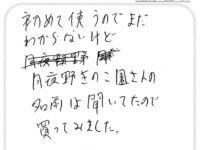 初めて使うのでまだ
わからないけど
月夜野きのこ園さんの
名前は聞いてたので
買ってみました。